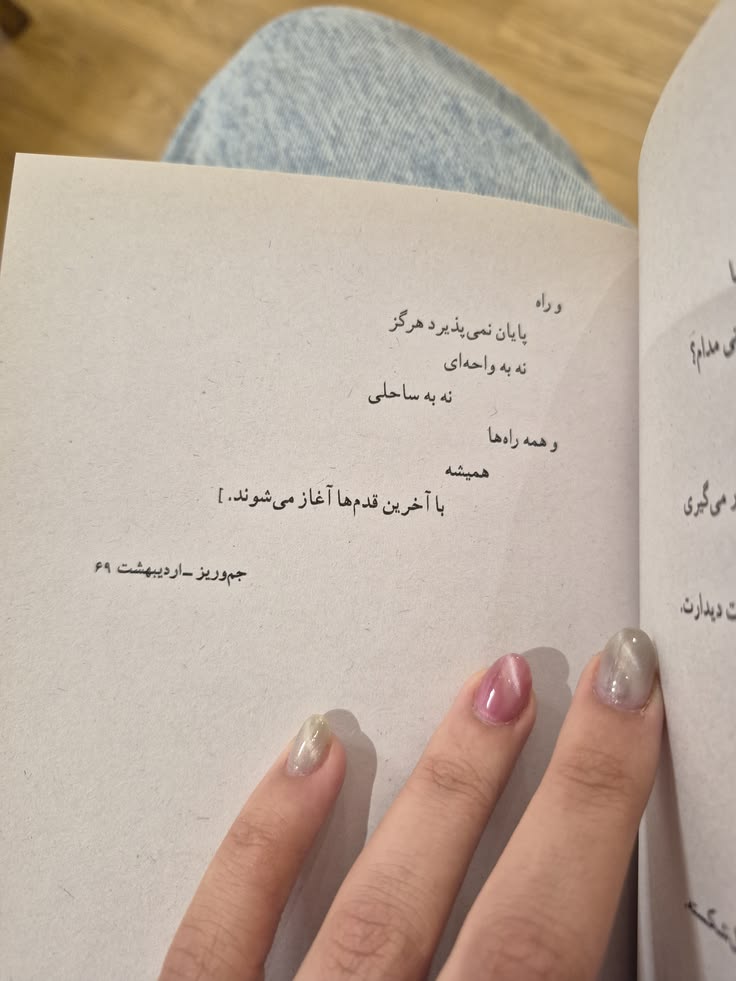 و راه
پایان نمی‌پذیرد هرگز
نه به واحه‌ای
نه به ساحلی
و همه راه‌ها
همیشه
با آخرین قدم‌ها آغاز می‌شوند. ]
جم‌وریز ـ اردیبهشت ۶۹
مدام؟
می‌گیری
دیدارت.